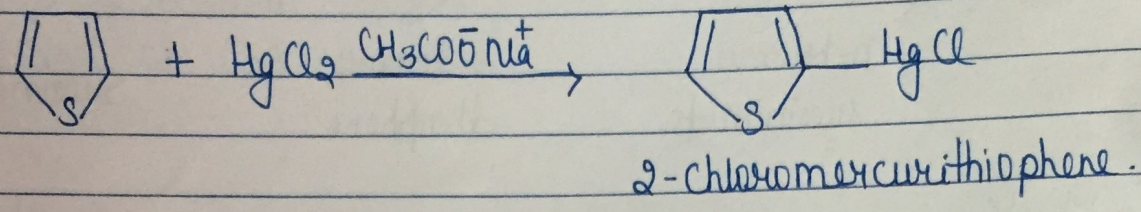 S + HgCl₂ CH₃COO⁻Na⁺ → S HgCl
2-Chloromercurithiophene.